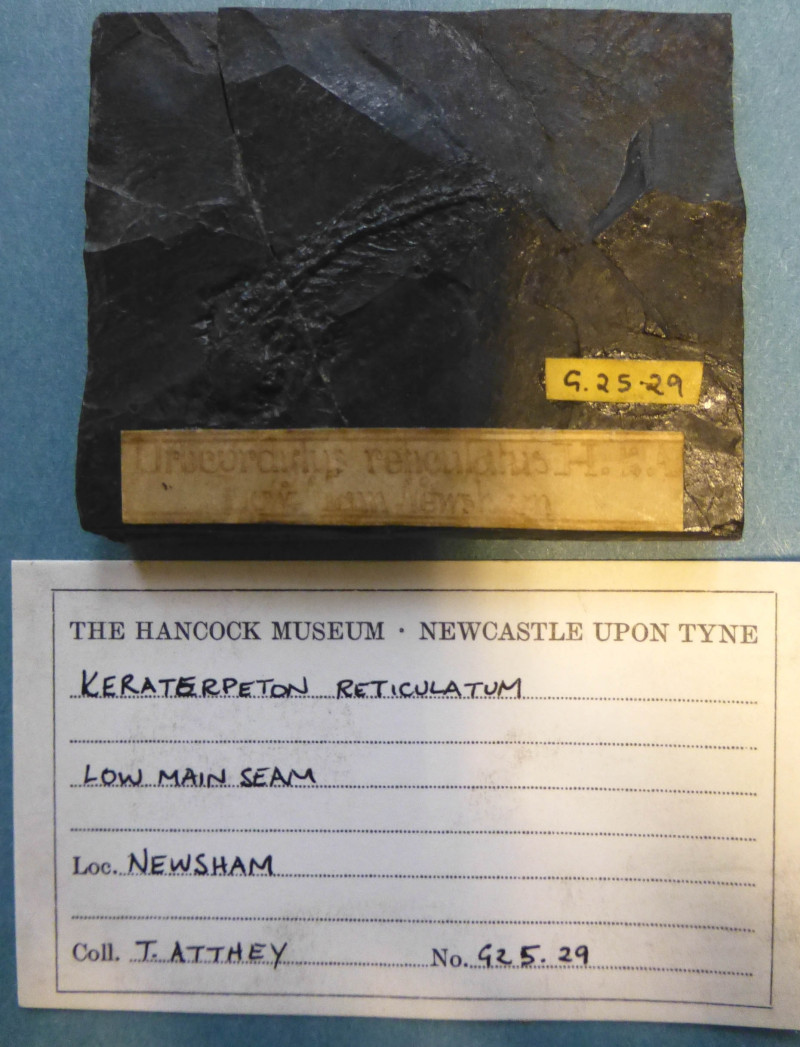 G.25.29
Urocordylus reticulatus H. & A
Low Main Newsham
THE HANCOCK MUSEUM · NEWCASTLE UPON TYNE
KERATERPETON RETICULATUM
LOW MAIN SEAM
Loc. NEWSHAM
Coll. T. ATTHEY No. G25.29